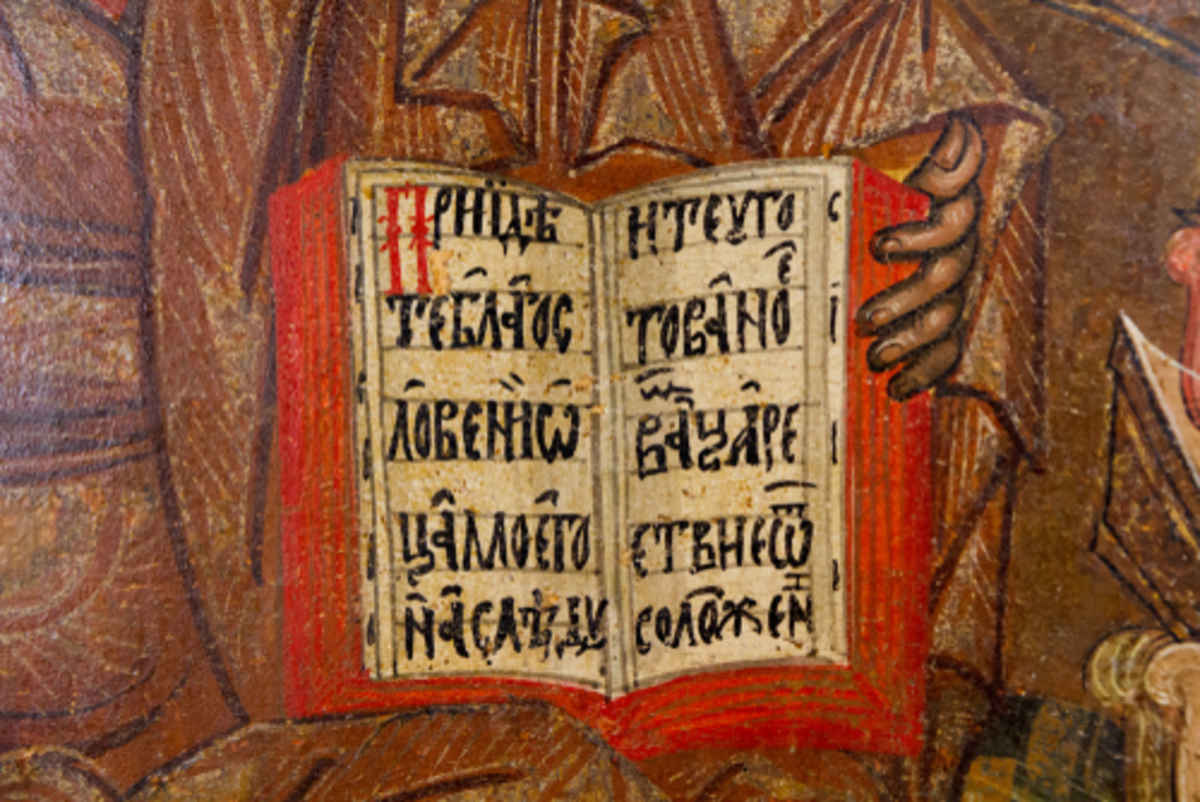 ПРИЇДѢ
ТЕБЛАГОС
ЛОВЕНЇИѠ
ЦАМОЕГО
НАСЛѢДУ
ИТЕУГО
ТОВАНОЕ
ВАᲅЦАРЕ
СТВНЕѾ
СОЛОЖЕН